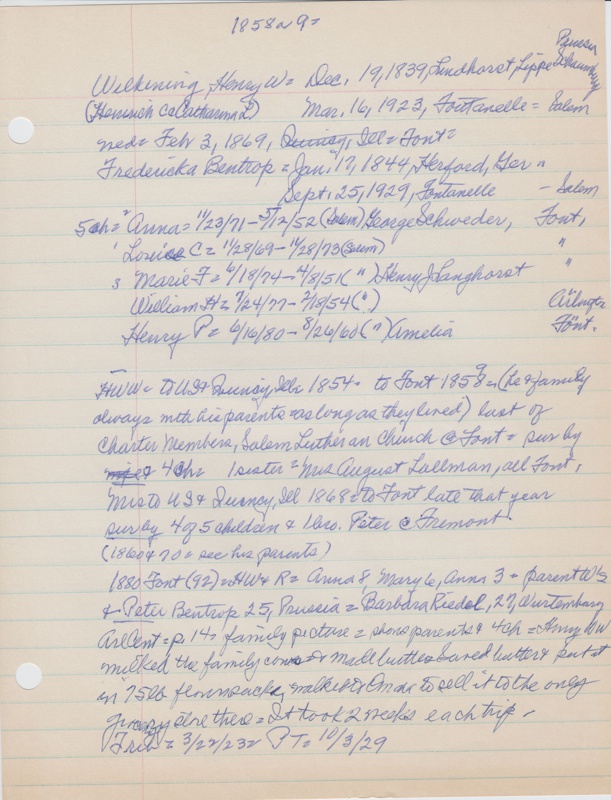 1858 & 9=
Prussia
Wilkening, Henry W= Dec. 19, 1839, Lindhorst, Lippe Schaumburg
(Heinrich C & Catharina L) Mar. 16, 1923, Fontanelle = Salem
med= Feb 3, 1869, Quincy, Ill = Font=
Fredericka Bentrop = Jan. 17, 1844, Herford, Ger "
Sept. 25, 1929, Fontanelle - Salem
5 ch= " Anna= 11/23/71 - 5/12/52 (Salem) George Schweder, Font,
' Louisa C= 11/28/69 - 11/28/73 (Salem) "
3 Marie F= 6/19/74 - 4/8/51 ( " ) Henry J Langhorst "
William H= 9/24/77 - 2/18/54 ( " ) Arlington
Henry P= 6/16/80 - 8/26/60 ( " ) Amelia Font.
HWW= to US & Quincy, Ill= 1854. to Font 1858 9 = (he & family
always with his parents = as long as they lived) last of
Charter Members, Salem Lutheran Church @ Font = sur by
4 Ch= 1 sister = Mrs August Lallman, all Font,
Mrs to US & Quincy, Ill 1868= to Font late that year
sur by 4 of 5 children & 1 bro. Peter @ Fremont
(1860 & 70 = see his parents)
1880 Font (92) = HW & R= Anna 8, Mary 6, Anna 3 + parent W's
& Peter Bentrop 25, Prussia = Barbara Riedel, 27, Wurtemburg
Arl Cent = p 14= family picture = shows parents & 4 ch = Henry WW
milked the family cows & made butter saved butter & put it
in 75 lb flour sacks, walked to Omaha to sell it to the only
grocery store there = It took 2 weeks each trip -
Trib = 3/22/23 = PT= 10/3/29